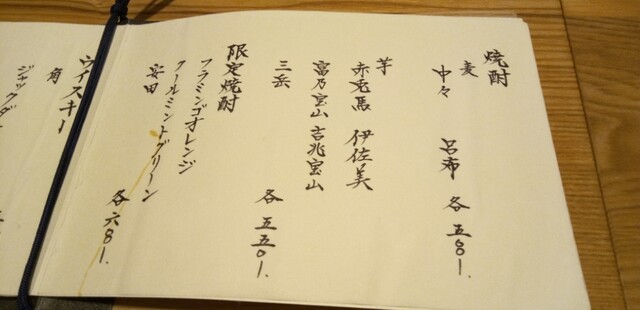 焼酎
麦
中々 呂布 各五〇〇1.
芋
赤兎馬 伊佐美
富乃宝山 吉兆宝山
三岳 各五五〇1.
限定焼酎
フラミンゴオレンジ
クールミントグリーン
安田 各六〇〇1.
ウイスキー
角
ジャックダ